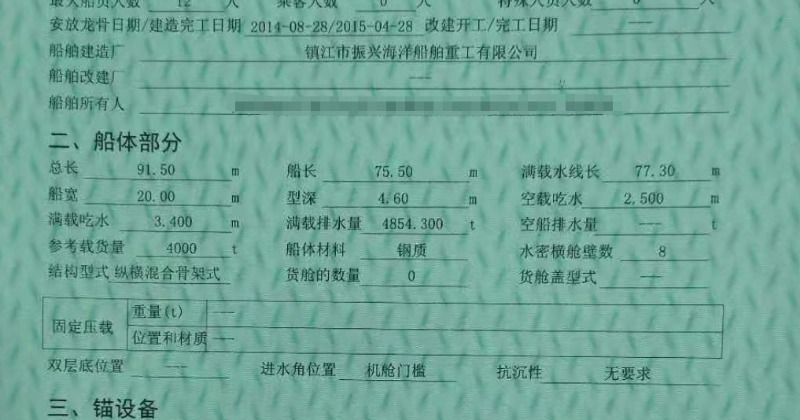 最大船员人数 12 人 乘客人数 0 人 特殊人员人数 0 人
安放龙骨日期/建造完工日期 2014-08-28/2015-04-28 改建开工/完工日期 ---
船舶建造厂 镇江市振兴海洋船舶重工有限公司
船舶改建厂 ---
船舶所有人
二、船体部分
总长 91.50 m 船长 75.50 m 满载水线长 77.30 m
船宽 20.00 m 型深 4.60 m 空载吃水 2.500 m
满载吃水 3.400 m 满载排水量 4854.300 t 空船排水量 --- t
参考载货量 4000 t 船体材料 钢质 水密横舱壁数 8
结构型式 纵横混合骨架式 货舱的数量 0 货舱盖型式 ---
固定压载 重量(t) ---
位置和材质 ---
双层底位置 --- 进水角位置 机舱门槛 抗沉性 无要求
三、锚设备